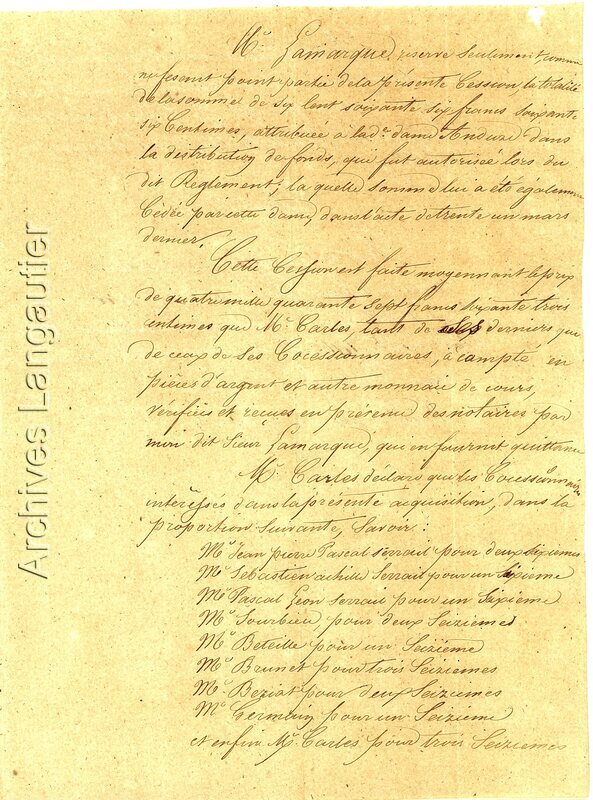 Mr Lamarque, reserve seulement, comme
ne fesant point partie de la présente Cession la totalité
de la somme de six Cent soixante six francs soixante
six Centimes, attribuée a lade dame Anduze dans
la distribution de fonds, qui fut autorisée lors du
dit Reglement, la quelle somme lui a été égalemen
Cédée par cette dame, dans l'acte de trente un mars
dernier.
Cette Cession est faite moyennant le prix
de quatre mille quarante sept francs soixante trois
centimes que Mr Carles, tant de ses derniers que
de ceux de ses Cocessionnaires, a compté en
pièces d'argent et autre monnaie de cours,
vérifiées et recues en présence des notaires par
mon dit Sieur Lamarque, qui en fournit quittance
Mr Carles déclare que les Cocessionnaires
interèsses dans la présente acquisition, dans la
proportion suivante, Savoir :
Mr Jean pierre Pascal Serrail pour deux sixiemes
Mr Sebastien achille Serrail pour un Sixieme
Mr Pascal Léon Serrail pour un Sixieme
Mr Sourbieu, pour deux Seiziemes
Mr Beteille pour un Seizième
Mr Brunet pour trois Seiziemes
Mr Beziat pour deux Seiziemes
Mr Germain pour un Seizieme
et enfin Mr Carles pour trois Seiziemes
Archives Langautier